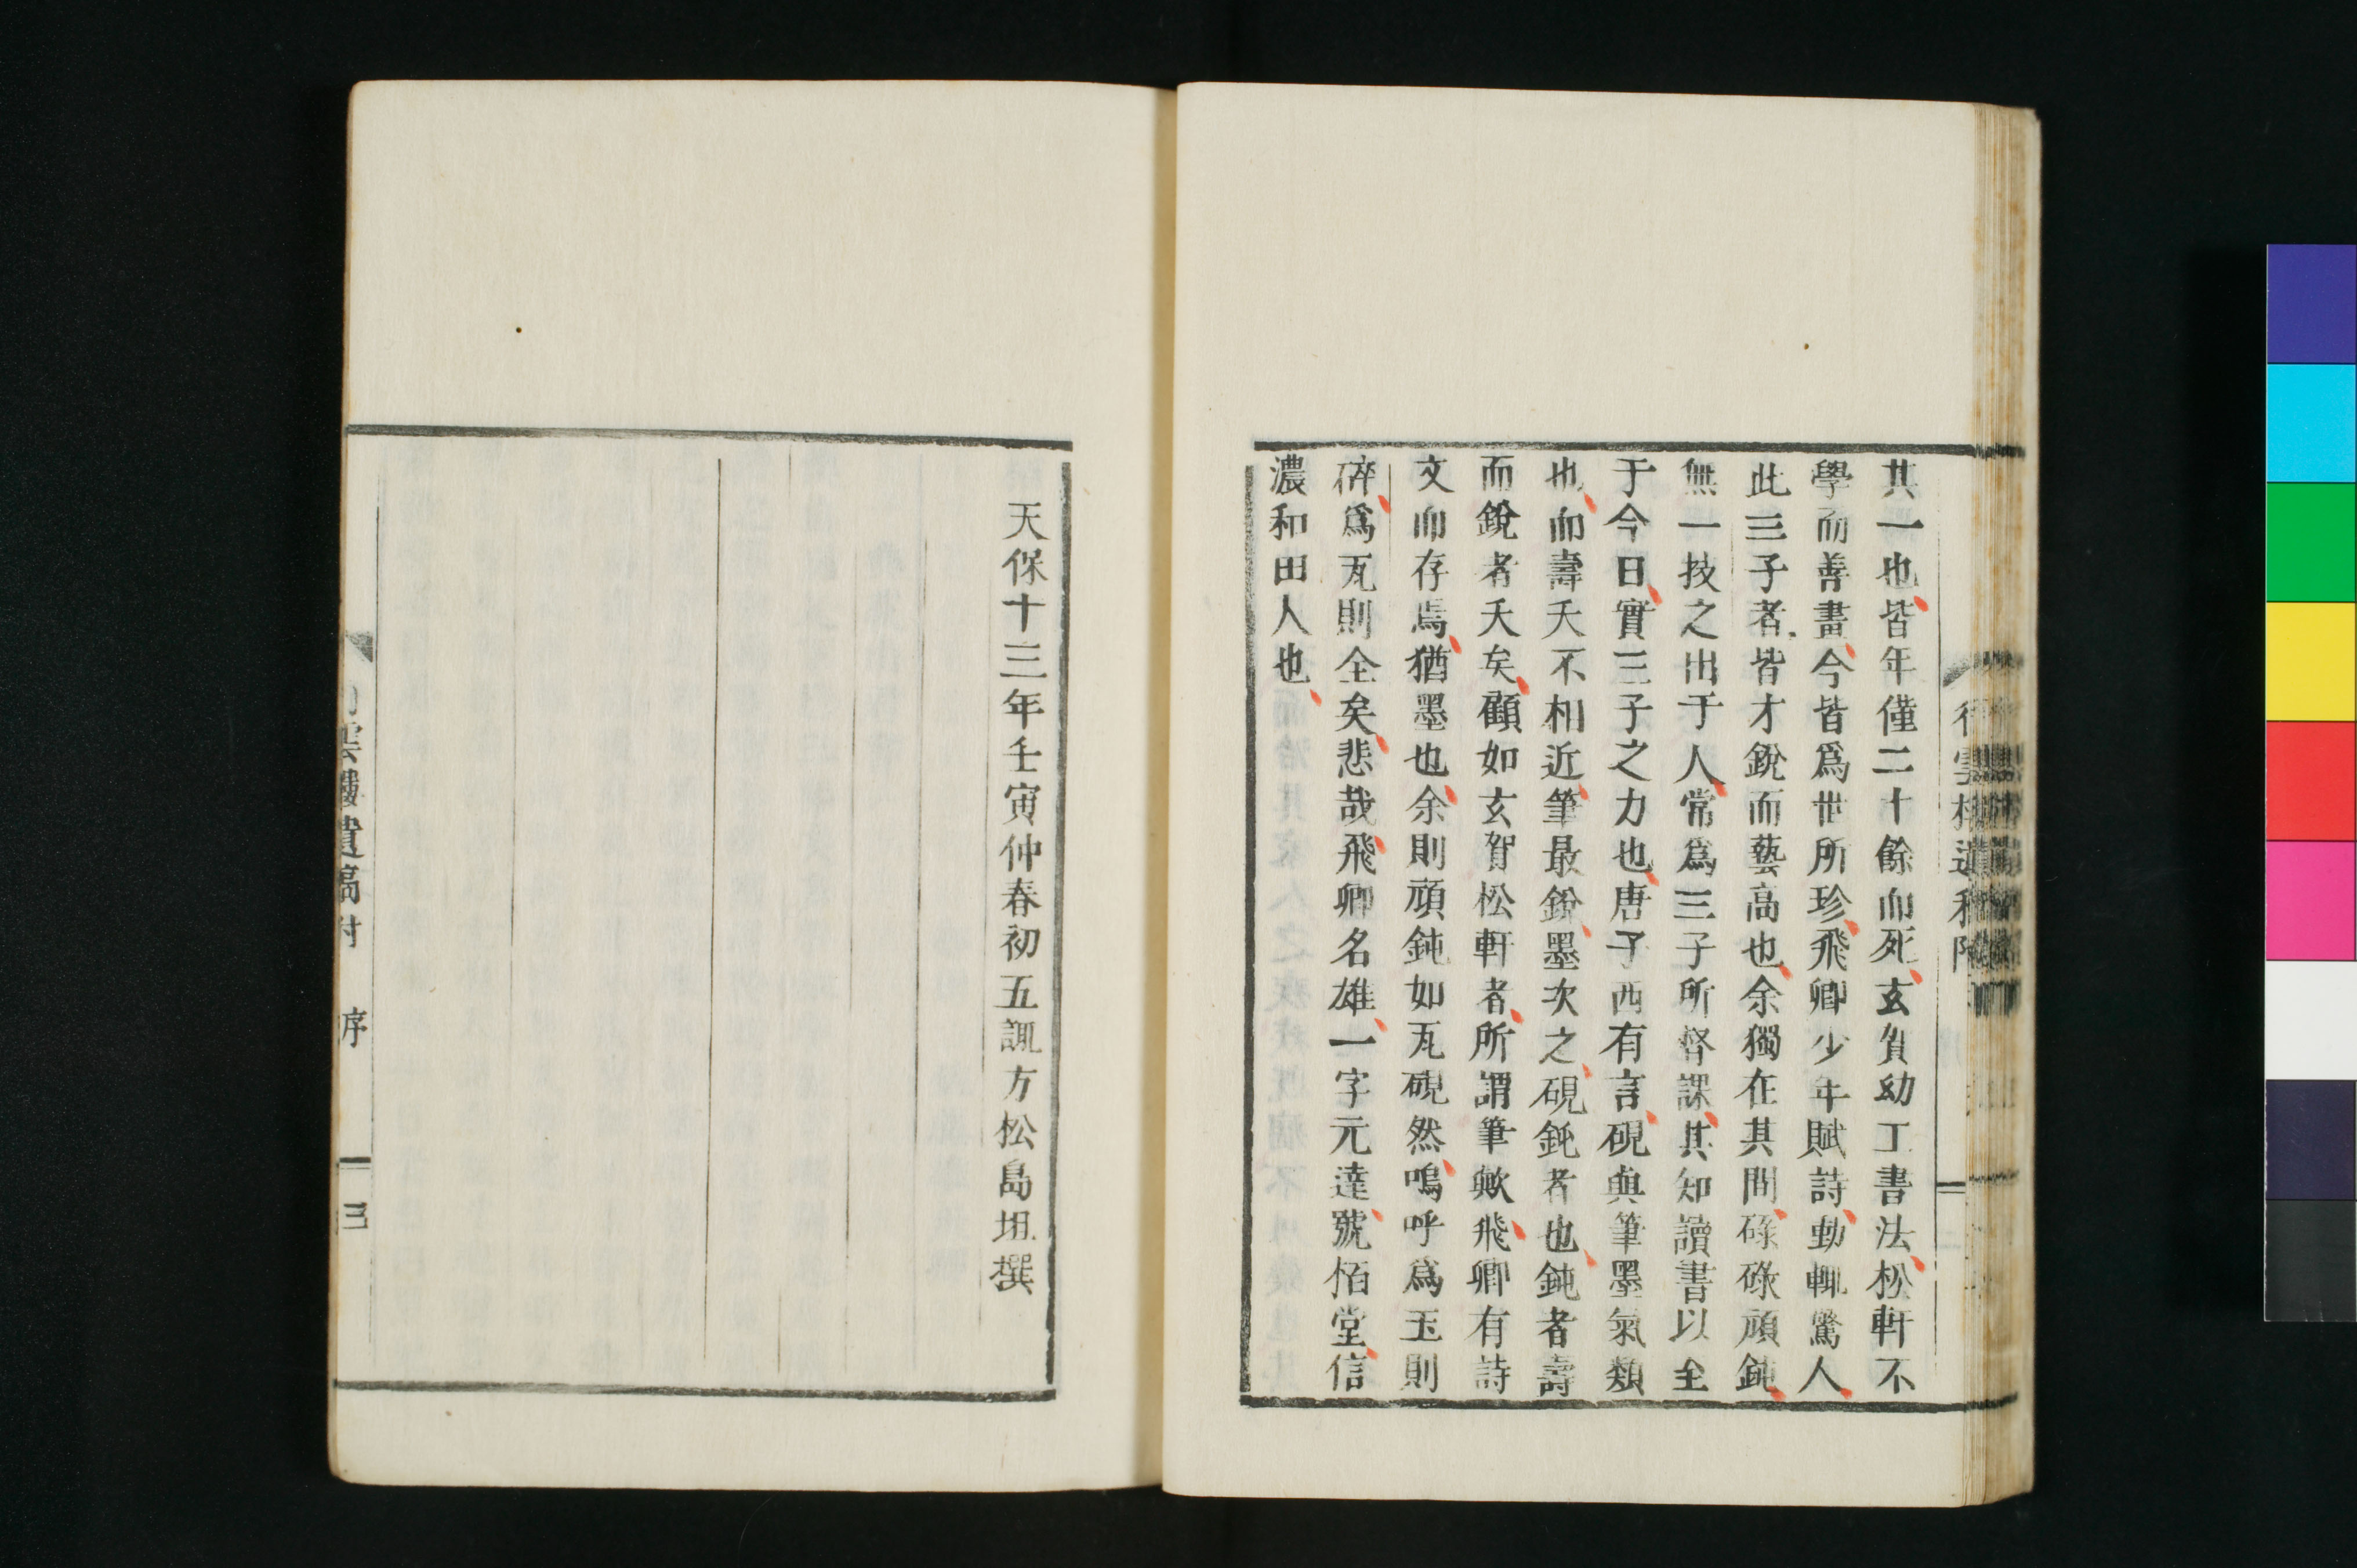 其一也皆年僅二十餘而死玄賀幼工書法松軒不
學而善畫今皆爲世所珍飛卿少年賦詩動輒驚人
此三子者皆才銳而藝高也余獨在其間碌碌頑鈍
無一技之出于人常爲三子所督課其知讀書以至
于今日實三子之力也唐子西有言硯與筆墨氣類
也而壽夭不相近筆最銳墨次之硯鈍者也鈍者壽
而銳者夭矣顧如玄賀松軒者所謂筆歟飛卿有詩
文而存焉猶墨也余則頑鈍如瓦硯然嗚呼爲玉則
碎爲瓦則全矣悲哉飛卿名雄一字元達號栢堂信
濃和田人也
天保十三年壬寅仲春初五諏方松島坦撰
雲樓遺稿付 序 三